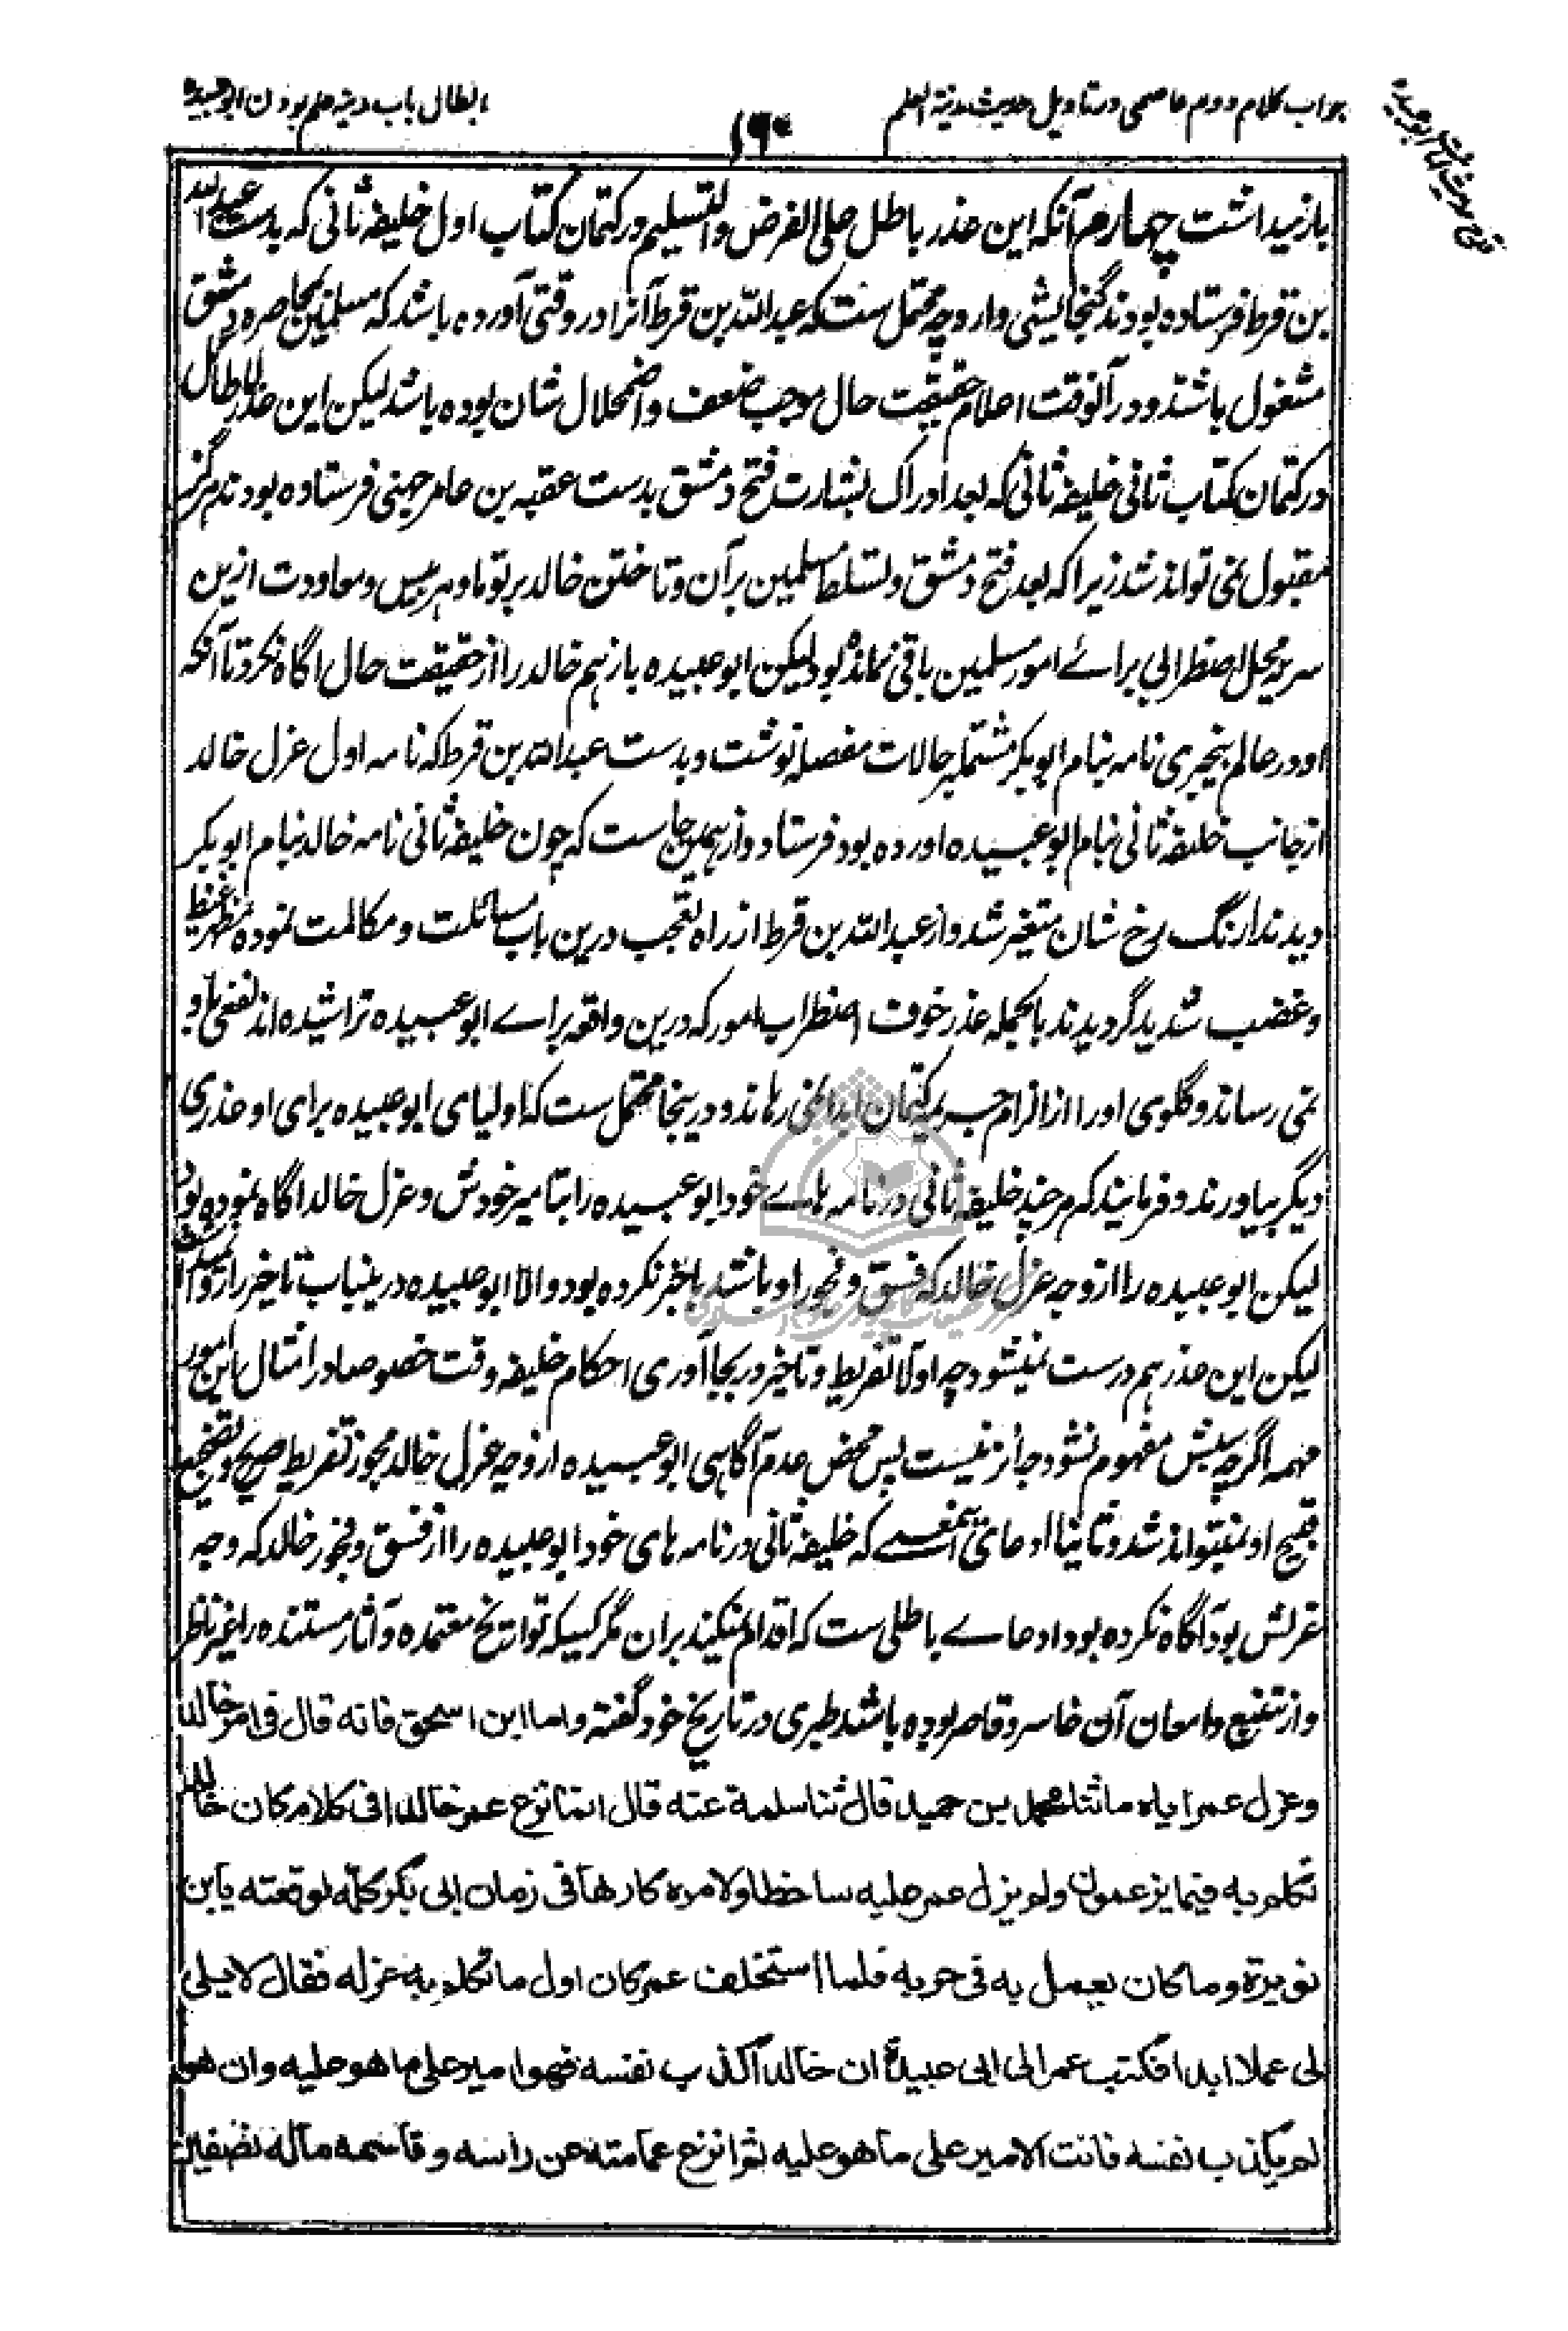 جواب کلام دوم عاصمی در تاویل حدیث مدینة العلم
۱۶۰
ابطال باب مدینه علم بودن ابو عبیده
قدح حدیث امانت ابو عبیده
باز نمیداشت چهارم آنکه این عذر باطل علی الفرض والتسلیم در کتمان کتاب اول خلیفه ثانی که بدست عبد الله
بن قرط فرستاده بودند گنجایشی دارد چه محتمل ست که عبد الله بن قرط آنرا در وقتی آورده باشد که مسلمین بمحاصره دمشق
مشغول باشند و در آنوقت اعلام حقیقت حال موجب ضعف و اضمحلال شان بوده باشد لیکن این عذر باطل
در کتمان کتاب ثانی خلیفه ثانی که بعد ادراک بشارت فتح دمشق بدست عقبه بن عامر جهنی فرستاده بودند هرگز
مقبول نمی تواند شد زیرا که بعد فتح دمشق و تسلط مسلمین بر آن و تاختن خالد بر توما و هربیس و معاودت ازین
سریه محل اضطرابی برائے امور مسلمین باقی نمانده بود لیکن ابو عبیده باز هم خالد را از حقیقت حال آگاه نکرد تا آنکه
او در عالم بیخبری نامه بنام ابوبکر مشتمل بر حالات مفصله نوشت و بدست عبد الله بن قرط که نامه اول عزل خالد
از جانب خلیفه ثانی بنام ابو عبیده آورده بود فرستاد و از همین جاست که چون خلیفه ثانی نامه خالد بنام ابو بکر
دیدند رنگ رخ شان متغیر شد و از عبد الله بن قرط از راه تعجب درین باب مسائلت و مکالمت نموده مظهر غیظ
و غضب شدید گردیدند بالجمله عذر خوف اضطراب امور که درین واقعه برائے ابو عبیده تراشیده اند نفعی باو
نمی رساند و گلوی او را از الزام کتمان ابدا نمی رهاند و درینجا محتمل ست که اولیای ابو عبیده برای او عذری
دیگر بیاورند و فرمایند که هر چند خلیفه ثانی در نامه هاے خود ابو عبیده را بتامیر خودش و عزل خالد آگاه نموده بود
لیکن ابو عبیده را از وجه عزل خالد که فسق و فجور او باشد باخبر نکرده بود والا ابو عبیده درینباب تاخیر روا نمیداشت
لیکن این عذر هم درست نمیشود چه اولا تفریط و تاخیر در بجا آوری احکام خلیفه وقت خصوصا در امتثال این امور
مهمه اگرچه سببش مفهوم نشود جائز نیست پس محض عدم آگاهی ابو عبیده از وجه عزل خالد مجوز تفریط صریح و تضجیع
قبیح او نمیتواند شد و ثانیا ادعای آنمعنے که خلیفه ثانی در نامه های خود ابو عبیده را از فسق و فجور خالد که وجه
عزلش بود آگاه نکرده بود ادعاے باطلی ست که اقدام نمیکند بر آن مگر کسیکه تواریخ معتمده و آثار مستنده را غیر ناظر
و از تتبع و امعان آن خاسر و قاصر بوده باشد طبری در تاریخ خود گفته و اما ابن اسحق فانه قال فی امر خالد
وعزل عمر ایاه ما ثنا محمد بن حمید قال ثنا سلمة عنه قال انما نزع عمر خالدا فی کلام کان خالد
تکلم به فیما یزعمون ولم یزل عمر علیه ساخطا ولامره کارها فی زمان ابی بکر کله لوقعته بابن
نویرة وما کان یعمل به فی حربه فلما استخلف عمر کان اول ما تکلم به عزله فقال لا یلی
لی عملا ابدا فکتب عمر الی ابی عبیدة ان خالد اکذب نفسه فهو امیر علی ما هو علیه وان هو
لم یکذب نفسه فانت الامیر علی ما هو علیه ثم انزع عمامته عن راسه وقاسمه ماله نصفین